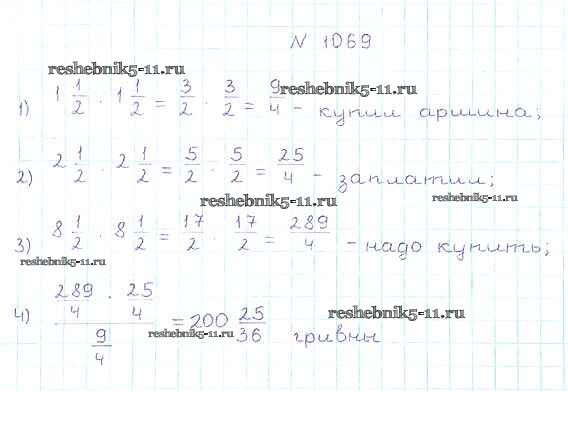 N 1069
reshebnik5-11.ru
1) 1 1/2 · 1 1/2 = 3/2 · 3/2 = 9/4 - купил аршина;
reshebnik5-11.ru
2) 2 1/2 · 2 1/2 = 5/2 · 5/2 = 25/4 - заплатил;
reshebnik5-11.ru
reshebnik5-11.ru
3) 8 1/2 · 8 1/2 = 17/2 · 17/2 = 289/4 - надо купить;
reshebnik5-11.ru
4) (289/4 · 25/4) / (9/4) = 200 25/36 гривны
reshebnik5-11.ru
reshebnik5-11.ru